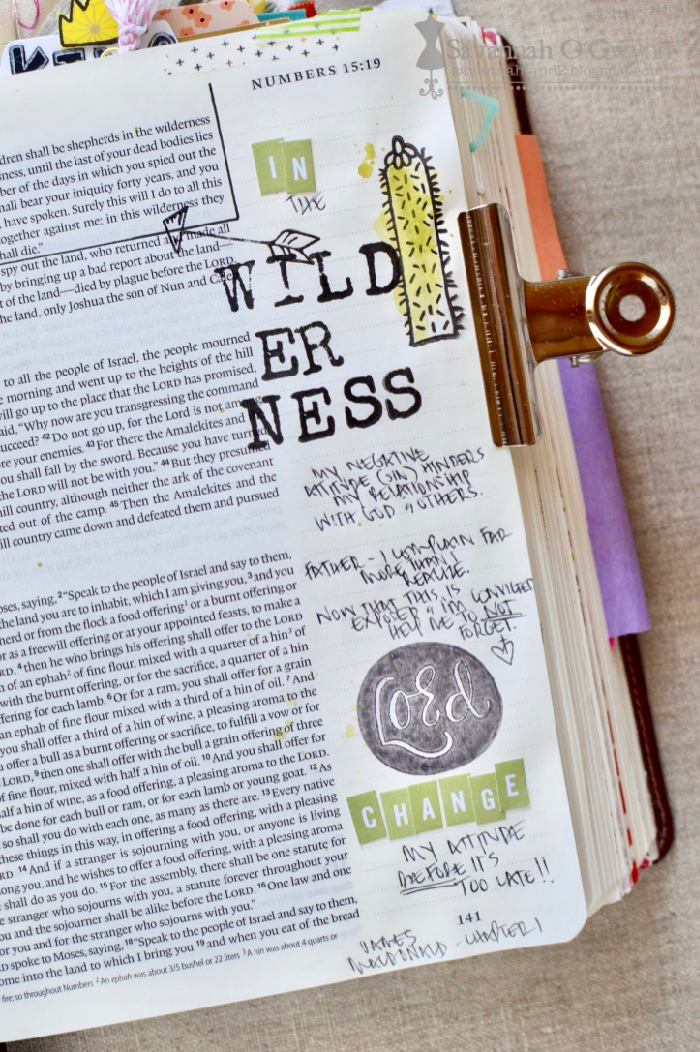 Savannah O'G
NUMBERS 15:19
dren shall be shepherds in the wilderness
ness, until the last of your dead bodies lies
ber of the days in which you spied out the
hall bear your iniquity forty years, and you
, have spoken. Surely this will I do to all this
together against me: in this wilderness they
hall die."
spy out the land, who returned and made all
by bringing up a bad report about the land—
t of the land—died by plague before the LORD.
he land, only Joshua the son of Nun and
to all the people of Israel, the people mourned
e morning and went up to the heights of the hill
will go up to the place that the LORD has promised,
aid, "Why now are you transgressing the command
ucceed? 42 Do not go up, for the Lord is not
re your enemies. 43 For there the Amalekites and
you shall fall by the sword. Because you have turned
the LORD will not be with you." 44 But they presumed
hill country, although neither the ark of the covenant
ted out of the camp. 45 Then the Amalekites and the
ill country came down and defeated them and pursued
oses, saying, 2 "Speak to the people of Israel and say to them,
the land you are to inhabit, which I am giving you, 3 and you
herd or from the flock a food offering1 or a burnt offering or
or as a freewill offering or at your appointed feasts, to make a
RD, 4 then he who brings his offering shall offer to the LORD
h of an ephah2 of fine flour, mixed with a quarter of a hin3 of
with the burnt offering, or for the sacrifice, a quarter of a hin
ffering for each lamb. 6 Or for a ram, you shall offer for a grain
an ephah of fine flour mixed with a third of a hin of oil. 7 And
you shall offer a third of a hin of wine, a pleasing aroma to the
offer a bull as a burnt offering or sacrifice, to fulfill a vow or for
LORD, 9 then one shall offer with the bull a grain offering of three
of fine flour, mixed with half a hin of oil. 10 And you shall offer for
half a hin of wine, as a food offering, a pleasing aroma to the LORD.
be done for each bull or ram, or for each lamb or young goat. 12 As
so shall you do with each one, as many as there are. 13 Every native
these things in this way, in offering a food offering, with a pleasing
RD. 14 And if a stranger is sojourning with you, or anyone is living
ong you, and he wishes to offer a food offering, with a pleasing aroma
shall do as you do. 15 For the assembly, there shall be one statute for
e stranger who sojourns with you, a statute forever throughout your
and the sojourner shall be alike before the LORD. 16 One law and one
or you and for the stranger who sojourns with you."
D spoke to Moses, saying, 18 "Speak to the people of Israel and say to them,
ome into the land to which I bring you 19 and when you eat of the bread
fire; so throughout Numbers 2 An ephah was about 3/5 bushel or 22 liters 3 A hin was about 4 quarts or
IN
THE
WILD
ER
NESS
MY NEGATIVE
ATTITUDE (SIN) HINDERS
MY RELATIONSHIP
WITH GOD & OTHERS.
FATHER - I COMPLAIN FAR
MORE THAN I
REALIZE.
NOW THAT THIS IS
EXPOSED & I'M CONVICTED
HELP ME TO NOT
FORGET
Lord
CHANGE
MY ATTITUDE
BEFORE IT'S
TOO LATE!!
141
JAMES
MACDONALD - CHAPTER 1